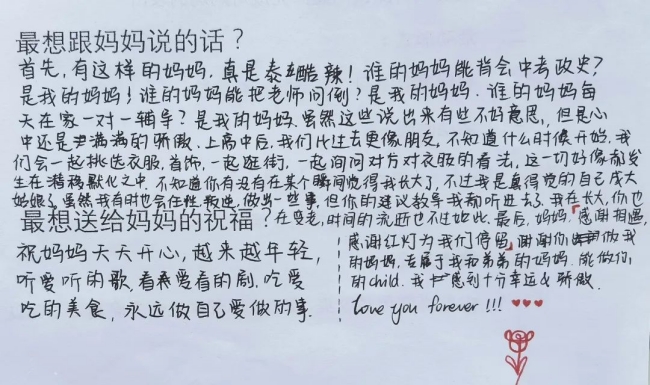 最想跟妈妈说的话？
首先，有这样的妈妈，真是泰酷辣！谁的妈妈能背会中考政史？
是我的妈妈！谁的妈妈能把老师问倒？是我的妈妈。谁的妈妈每
天在家一对一辅导？是我的妈妈。虽然这些说出来有些不好意思，但是心
中还是满满的骄傲。上高中后，我们比过去更像朋友，不知道什么时候开始，我
们会一起挑选衣服，首饰，一起逛街，一起询问对方对衣妆的看法，这一切好像都发
生在潜移默化之中。不知道你有没有在某个瞬间觉得我长大了，不过我是真得觉的自己成大
姑娘了。虽然我有时也会任性叛逆，做出一些事，但你的建议教导我都听进去了。我在长大，你也
最想送给妈妈的祝福？在变老，时间的流逝也不过如此。最后，妈妈，感谢相遇，
感谢红灯为我们停留，谢谢你做我
的妈妈，专属于我和弟弟的妈妈。能做你
的child，我感到十分幸运&骄傲。
love you forever!!! ♥♥♥
祝妈妈天天开心，越来越年轻，
听爱听的歌，看爱看的剧，吃爱
吃的美食，永远做自己爱做的事。